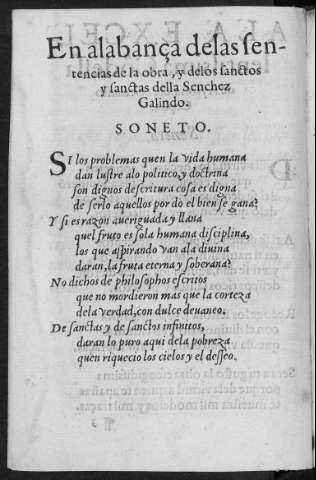 En alabança delas sen-
tencias de la obra, y delos sanctos
y sanctas della Senchez
Galindo.
SONETO.
SI los problemas quen la vida humana
dan lustre alo politico, y doctrina
son dignos descritura cosa es digna
de serlo aquellos por do el bien se gana?
Y si es razon aueriguada y llana
quel fruto es sola humana disciplina,
los que aspirando van ala diuina
daran, la fruta eterna y soberana?
No dichos de philosophos escritos
que no mordieron mas que la corteza
de la verdad, con dulce deuaneo.
De sanctas y de sanctos infinitos,
daran lo puro aqui dela pobreza
quen riquecio los cielos y el desseo.